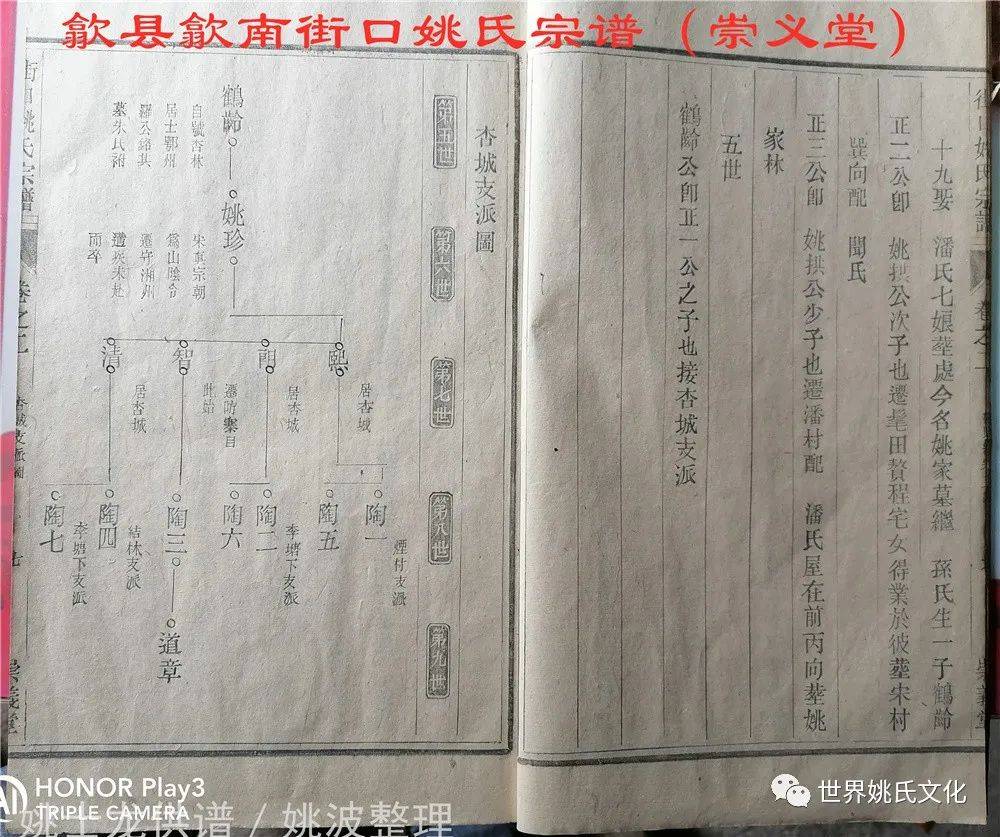 歙县歙南街口姚氏宗谱（崇义堂）
十九娶　潘氏七娘塟處今名姚家墓繼　孫氏生一子鶴齡
正二公卽　姚拱公次子也遷毛田贅程宅女得業於彼塟宋村
巽向配　聞氏
正三公卽　姚拱公少子也遷潘村配　潘氏屋在前丙向塟姚
家林
五世
鶴齡公卽正一公之子也接杏城支派
杏城支派圖
第五世
第六世
第七世
第八世
第九世
鶴齡
自號杏林
居士鄞州
羅公銘其
墓朱氏祔
姚珍
宋眞宗朝
爲山陰令
遷守湘州
遘疾未赴
而卒
熙
居杏城
朗
居杏城
智
遷昉槳目
此始
清
居杏城
陶一
煙村支派
陶五
陶二
李塘下支派
陶六
陶三
陶四
結林支派
陶七
李塘下支派
道章
街口姚氏宗譜
卷之二
杏城支派圖
七
崇義堂
HONOR Play3
TRIPLE CAMERA
世界姚氏文化